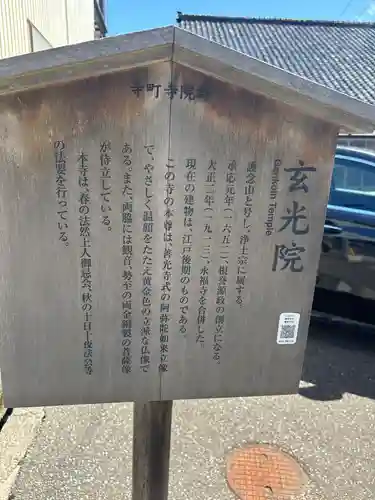 寺町寺院群
玄光院
Genkoin Temple
護念山と号し、浄土宗に属する。
承応元年(一六五二)、根誉源政の創立になる。
大正二年(一九一三)、永福寺を合併した。
現在の建物は、江戸後期のものである。
この寺の本尊は、善光寺式の阿弥陀如来立像
で、やさしく温顔をたたえ黄金色の立派な仏像で
ある。また、両脇には観音、勢至の両金銅製の菩薩像
が侍立している。
本寺は、春の法然上人御忌会、秋の十日十夜法会等
の法要を行っている。